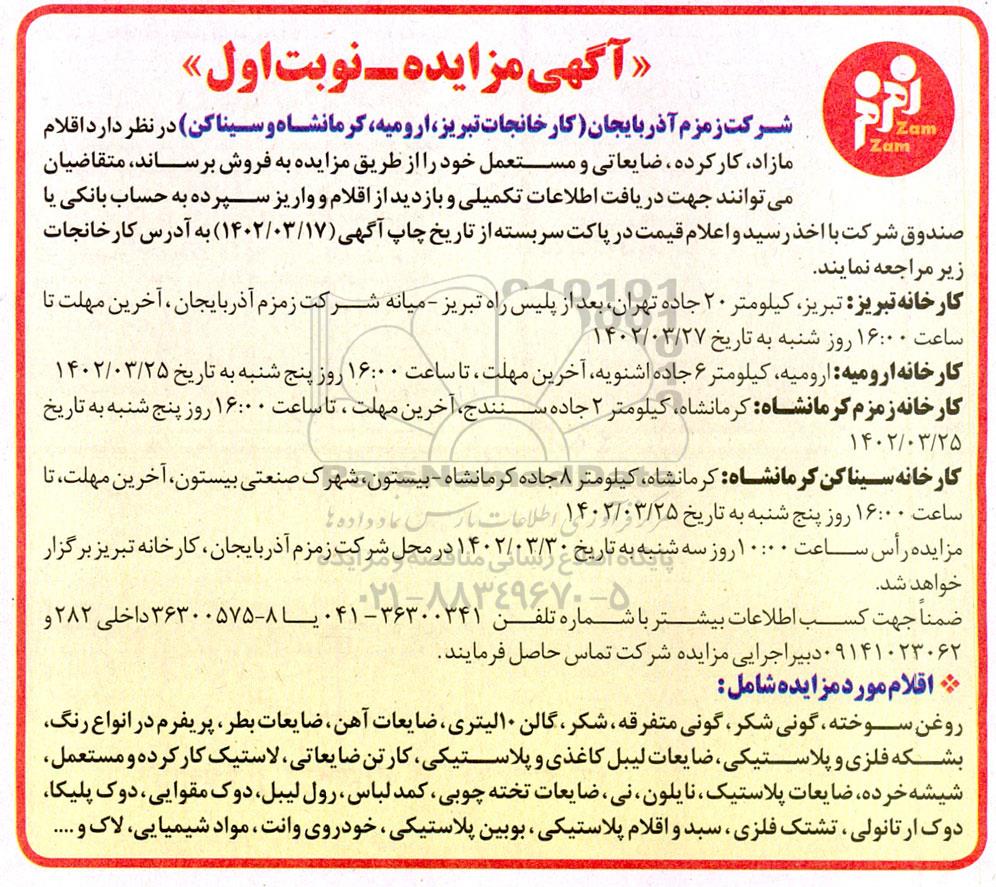 «آگهی مزایده ـ نوبت اول»
Zam
Zam
شرکت زمزم آذربایجان (کارخانجات تبریز، ارومیه، کرمانشاه و سیناکن) در نظر دارد اقلام
مازاد، کارکرده، ضایعاتی و مستعمل خود را از طریق مزایده به فروش برساند، متقاضیان
می توانند جهت دریافت اطلاعات تکمیلی و بازدید از اقلام و واریز سپرده به حساب بانکی یا
صندوق شرکت با اخذ رسید و اعلام قیمت در پاکت سربسته از تاریخ چاپ آگهی (۱۴۰۲/۰۳/۱۷) به آدرس کارخانجات
زیر مراجعه نمایند.
کارخانه تبریز: تبریز، کیلومتر ۲۰ جاده تهران، بعد از پلیس راه تبریز - میانه شرکت زمزم آذربایجان، آخرین مهلت تا
ساعت ۱۶:۰۰ روز شنبه به تاریخ ۱۴۰۲/۰۳/۲۷
کارخانه ارومیه: ارومیه، کیلومتر ۶ جاده اشنویه، آخرین مهلت، تا ساعت ۱۶:۰۰ روز پنج شنبه به تاریخ ۱۴۰۲/۰۳/۲۵
کارخانه زمزم کرمانشاه: کرمانشاه، کیلومتر ۲ جاده سنندج، آخرین مهلت، تا ساعت ۱۶:۰۰ روز پنج شنبه به تاریخ
۱۴۰۲/۰۳/۲۵
کارخانه سیناکن کرمانشاه: کرمانشاه، کیلومتر ۸ جاده کرمانشاه - بیستون، شهرک صنعتی بیستون، آخرین مهلت، تا
ساعت ۱۶:۰۰ روز پنج شنبه به تاریخ ۱۴۰۲/۰۳/۲۵
مزایده رأس ساعت ۱۰:۰۰ روز سه شنبه به تاریخ ۱۴۰۲/۰۳/۳۰ در محل شرکت زمزم آذربایجان، کارخانه تبریز برگزار
خواهد شد.
ضمناً جهت کسب اطلاعات بیشتر با شماره تلفن ۳۶۳۰۰۳۴۱-۰۴۱ یا ۸-۳۶۳۰۰۵۷۵ داخلی ۲۸۲ و
۰۹۱۴۱۰۲۳۰۶۲ دبیر اجرایی مزایده شرکت تماس حاصل فرمایند.
❖ اقلام مورد مزایده شامل:
روغن سوخته، گونی شکر، گونی متفرقه، شکر، گالن ۱۰ لیتری، ضایعات آهن، ضایعات بطر، پریفرم در انواع رنگ،
بشکه فلزی و پلاستیکی، ضایعات لیبل کاغذی و پلاستیکی، کارتن ضایعاتی، لاستیک کارکرده و مستعمل،
شیشه خرده، ضایعات پلاستیک، نایلون، نی، ضایعات تخته چوبی، کمد لباس، رول لیبل، دوک مقوایی، دوک پلیکا،
دوک ارتانولی، تشتک فلزی، سبد و اقلام پلاستیکی، بوبین پلاستیکی، خودروی وانت، مواد شیمیایی، لاک و ....
ParsNamadData
مرکز فرآوری اطلاعات پارس نماد داده ها
پایگاه اطلاع رسانی مناقصه و مزایده
۰۲۱-۸۸۳۴۹۶۷۰-۵